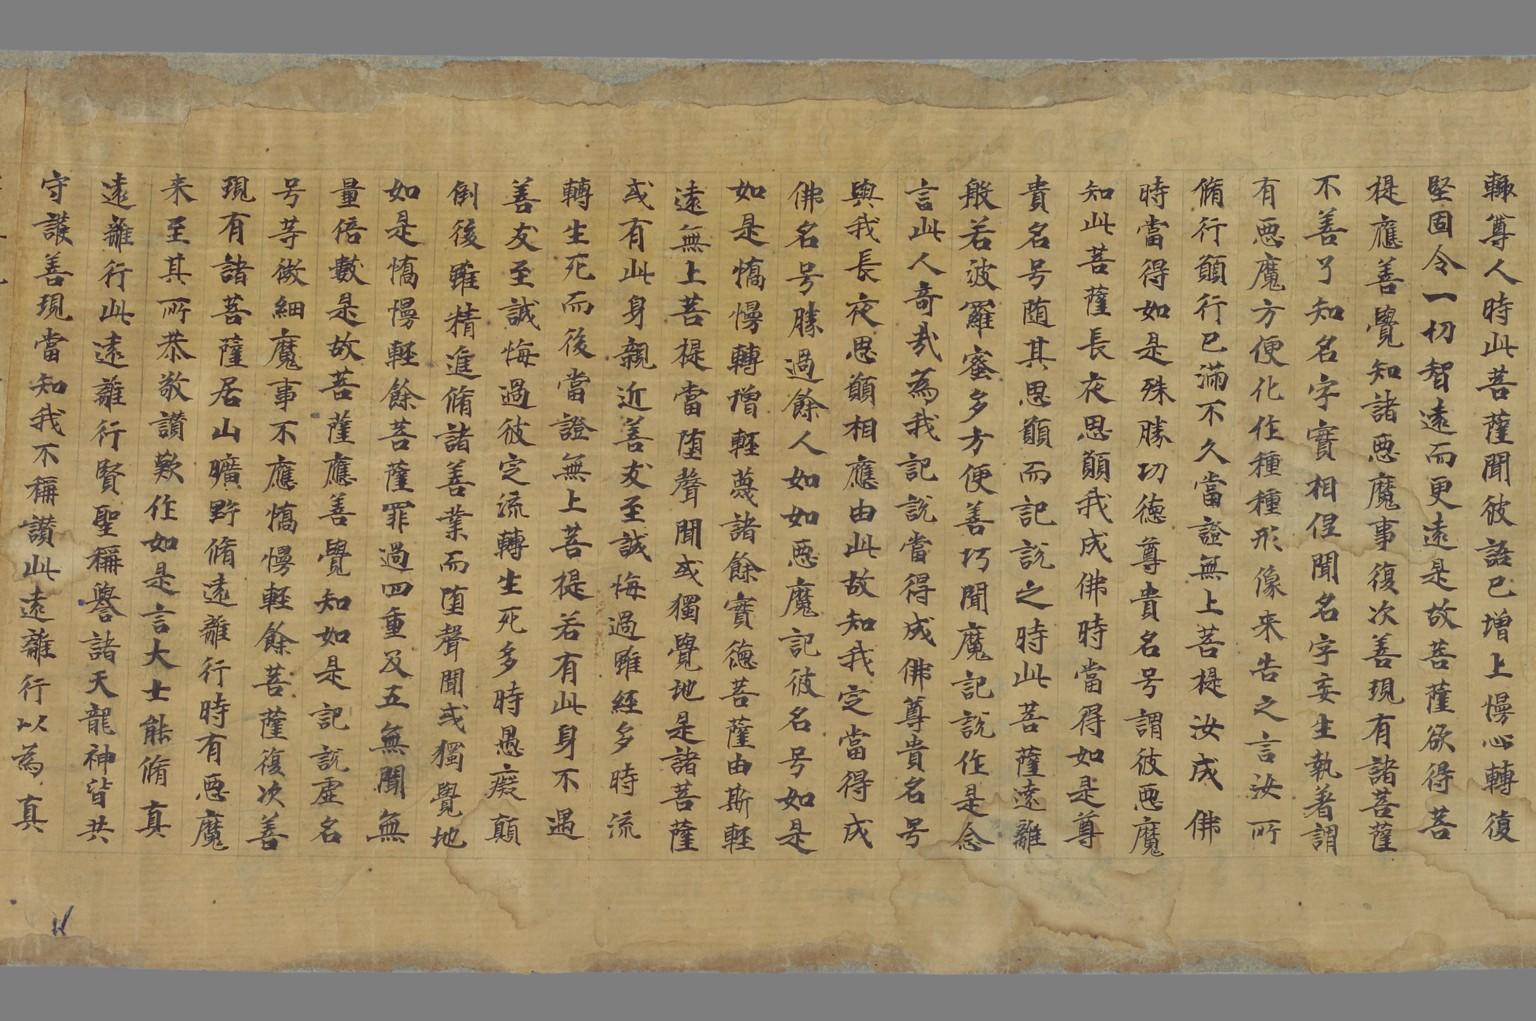 輙尊人時此菩薩聞彼語已增上慢心轉復
堅固令一切智遠而更遠是故菩薩欲得菩
提應善覺知諸惡魔事復次善現有諸菩薩
不善了知名字實相但聞名字妄生執著謂
有惡魔方便化作種種形像来告之言汝所
脩行願行已滿不久當證無上菩提汝成佛
時當得如是殊勝功德尊貴名号謂彼惡魔
知此菩薩長夜思願我成佛時當得如是尊
貴名号随其思願而記說之時此菩薩遠離
般若波羅蜜多方便善巧聞魔記說作是念
言此人奇㢤為我記說當得成佛尊貴名号
與我長夜思願相應由此故知我定當得成
佛名号勝過餘人如如惡魔記彼名号如是
如是憍慢轉增輕蔑諸餘實德菩薩由斯輕
遠無上菩提當堕聲聞或獨覺地是諸菩薩
或有此身親近善友至誠悔過雖經多時流
轉生死而後當證無上菩提若有此身不遇
善友至誠悔過彼定流轉生死多時愚癡顛
倒後雖精進脩諸善業而堕聲聞或獨覺地
如是憍慢輕餘菩薩罪過四重及五無間無
量倍數是故菩薩應善覺知如是記說虛名
号等微細魔事不應憍慢輕餘菩薩復次善
現有諸菩薩居山曠野脩遠離行時有惡魔
来至其所恭敬讃歎作如是言大士能脩真
遠離行此遠離行賢聖稱譽諸天龍神皆共
守護善現當知我不稱讃此遠離行以為真